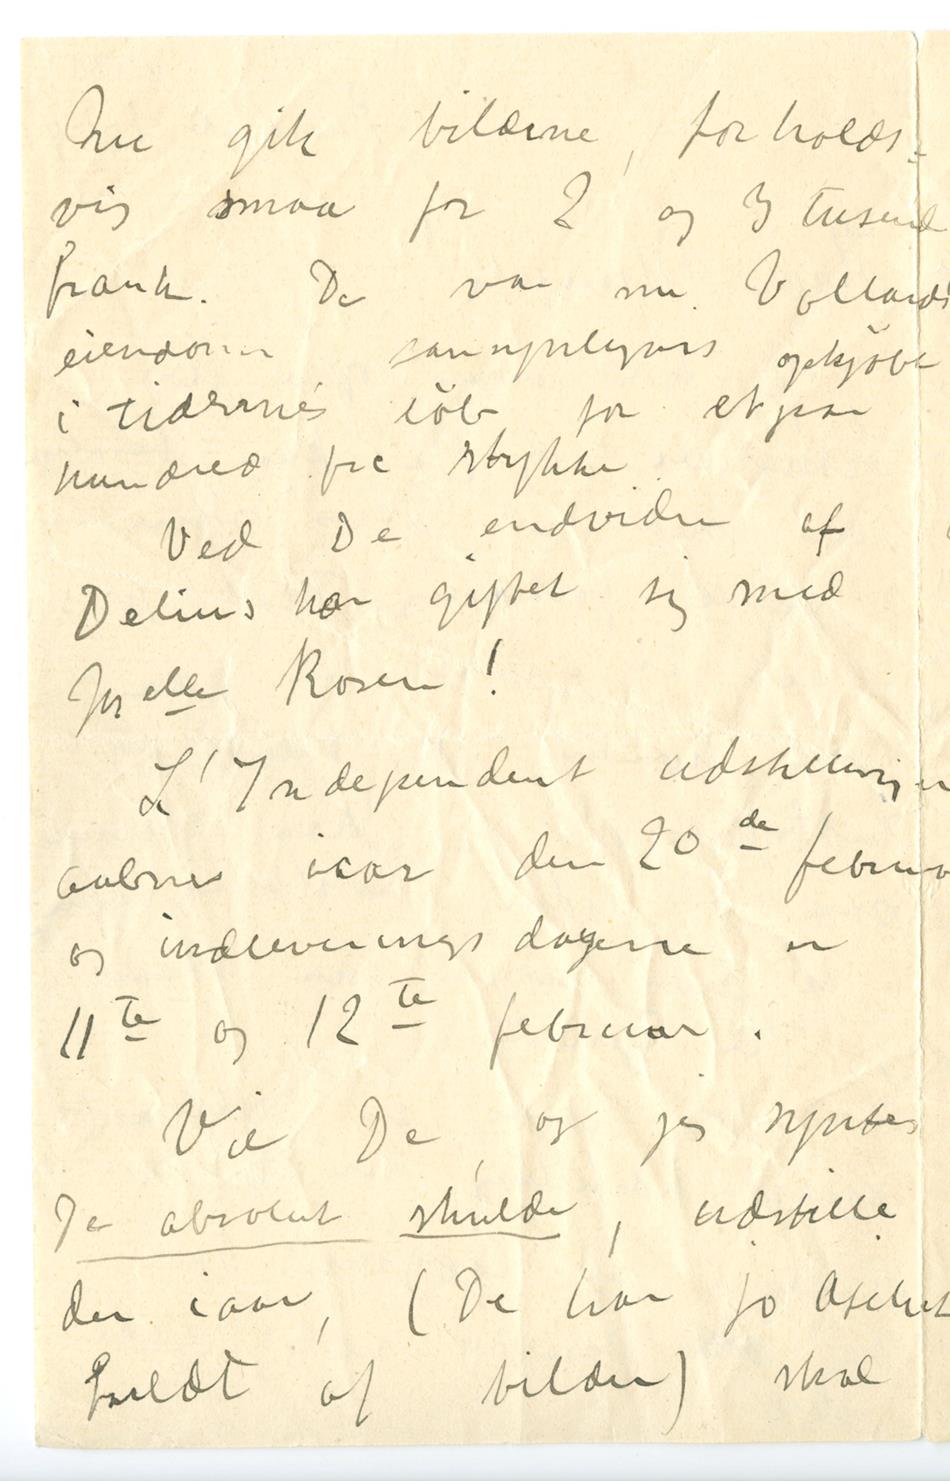 Nu gik bilderne, forholds-
vis smaa for 2 og 3 tusend
frank. De var nu Vollards
eiendom sansynligvis opkjøbt
i tidernes løb for et par
hundred frc stykke
Ved De endvidre at
Delius har giftet sig med
Jelle Rosen!
L'Independent udstillingen
aabnes iaar den 20de februar
og indleverings dagene er
11te og 12te februar.
Vil De, og jeg syntes
De absolut skulde, udstille
der iaar, (De har jo
fuldt af bilder) skal